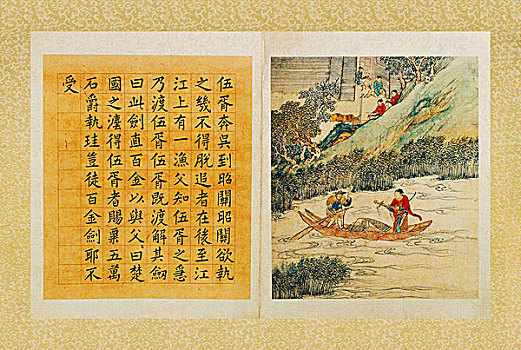 伍胥奔吳到昭關昭關欲執
之幾不得脫追者在後至江
江上有一漁父知伍胥之急
乃渡伍胥伍胥既渡解其劍
曰此劍直百金以與父曰楚
國之灋得伍胥者賜粟五萬
石爵執珪豈徒百金劍耶不
受